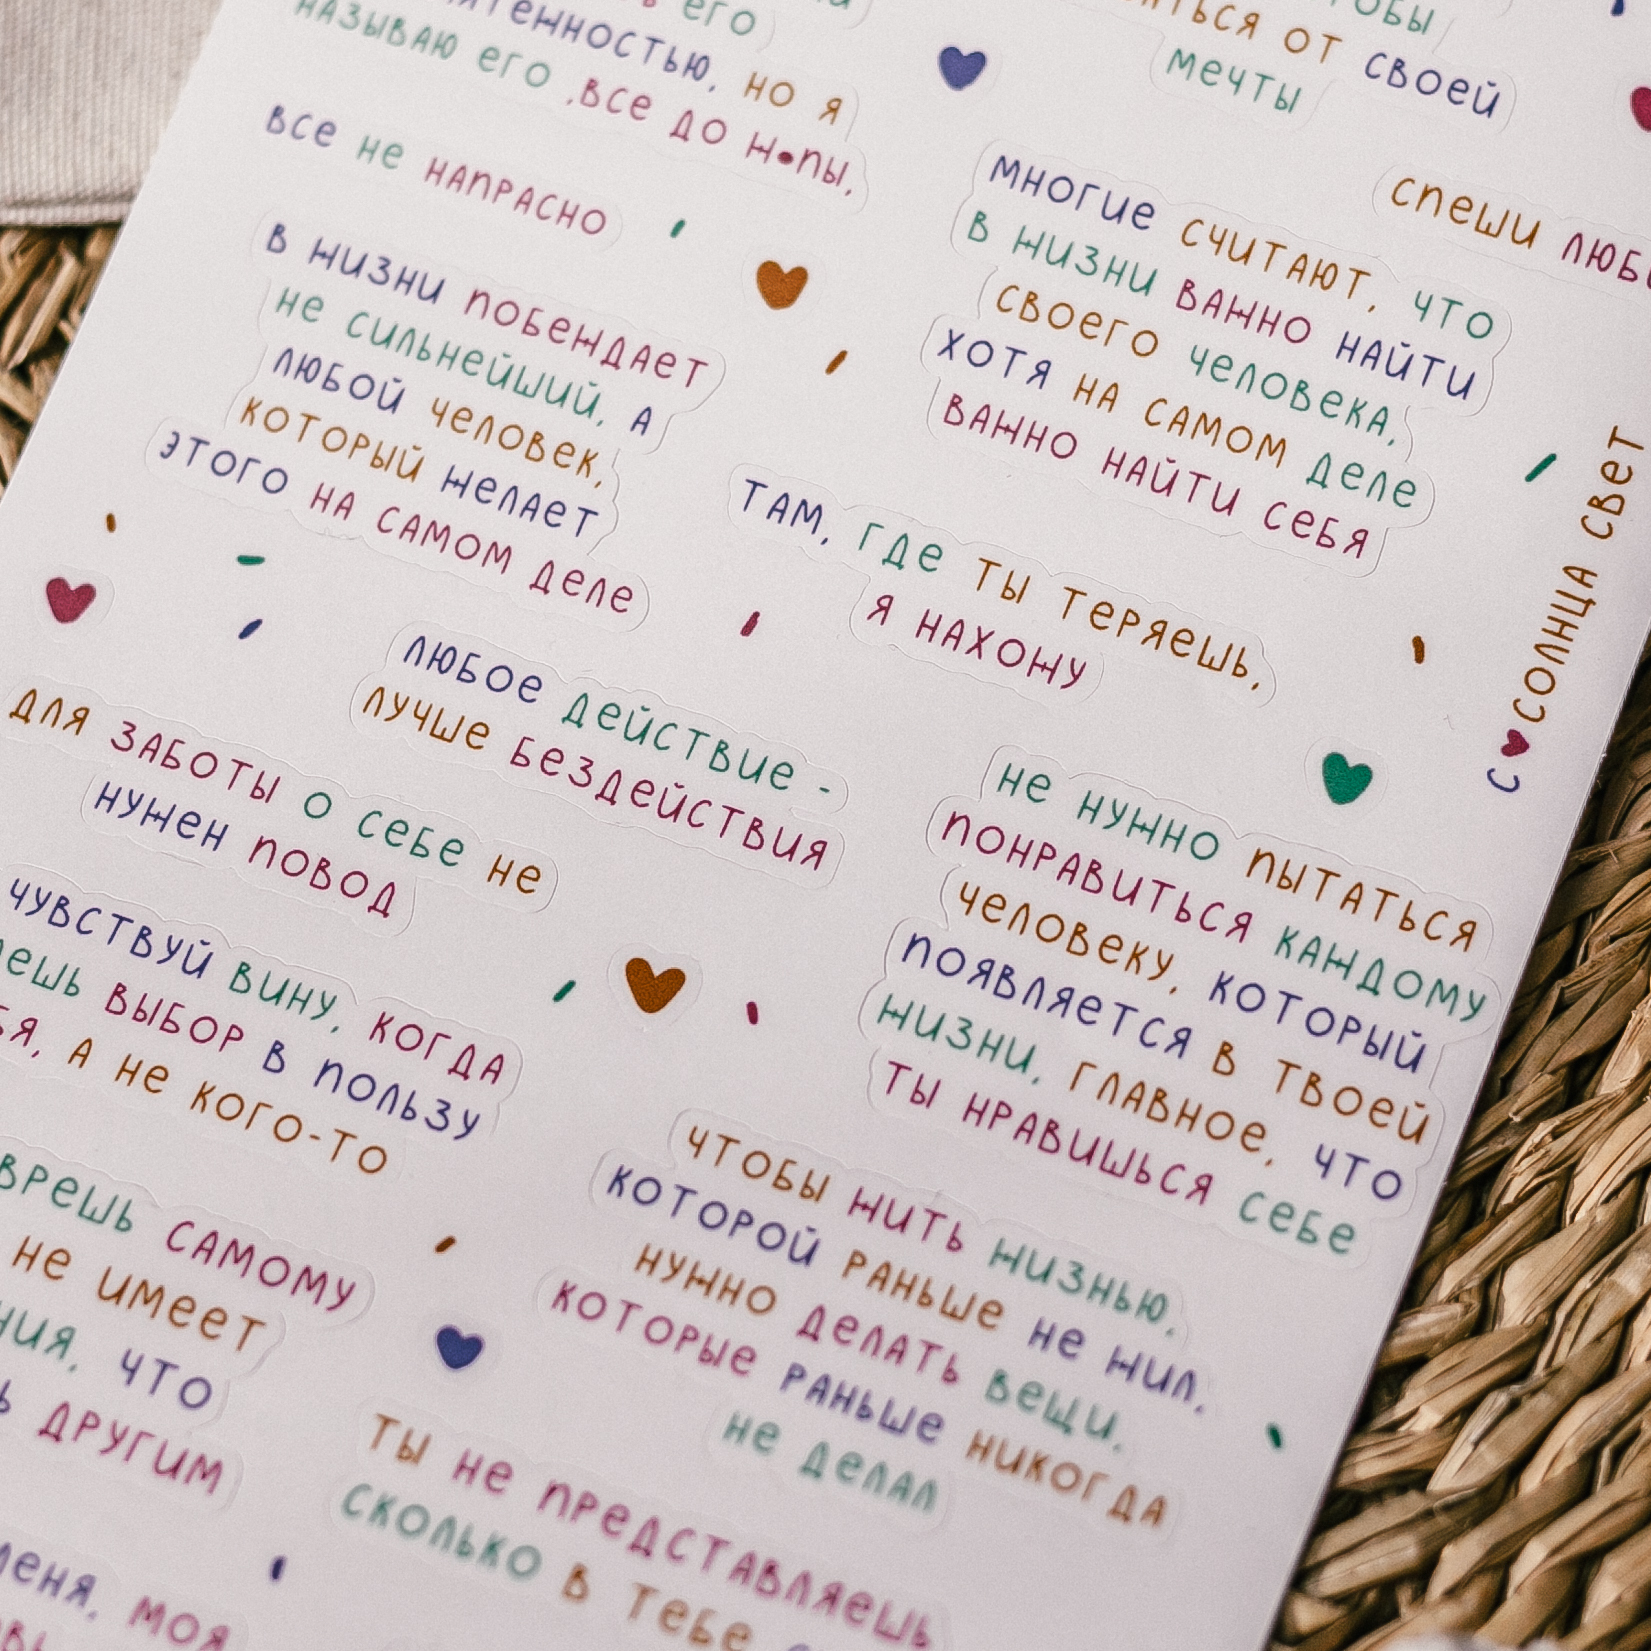 его
но я
называю его ,все до ж•пы,
все не напрасно
в жизни побеждает
не сильнейший, а
любой человек,
который желает
этого на самом деле
любое действие -
лучше бездействия
для заботы о себе не
нужен повод
чувствуй вину, когда
выбор в пользу
а не кого-то
врешь самому
не имеет
что
другим
моя
от своей
мечты
многие считают, что
в жизни важно найти
своего человека,
хотя на самом деле
важно найти себя
спеши
там, где ты теряешь,
я нахожу
не нужно пытаться
понравиться каждому
человеку, который
появляется в твоей
жизни, главное, что
ты нравишься себе
чтобы жить жизнью,
которой раньше не жил,
нужно делать вещи,
которые раньше никогда
не делал
ты не представляешь
сколько в тебе
с❤солнца свет